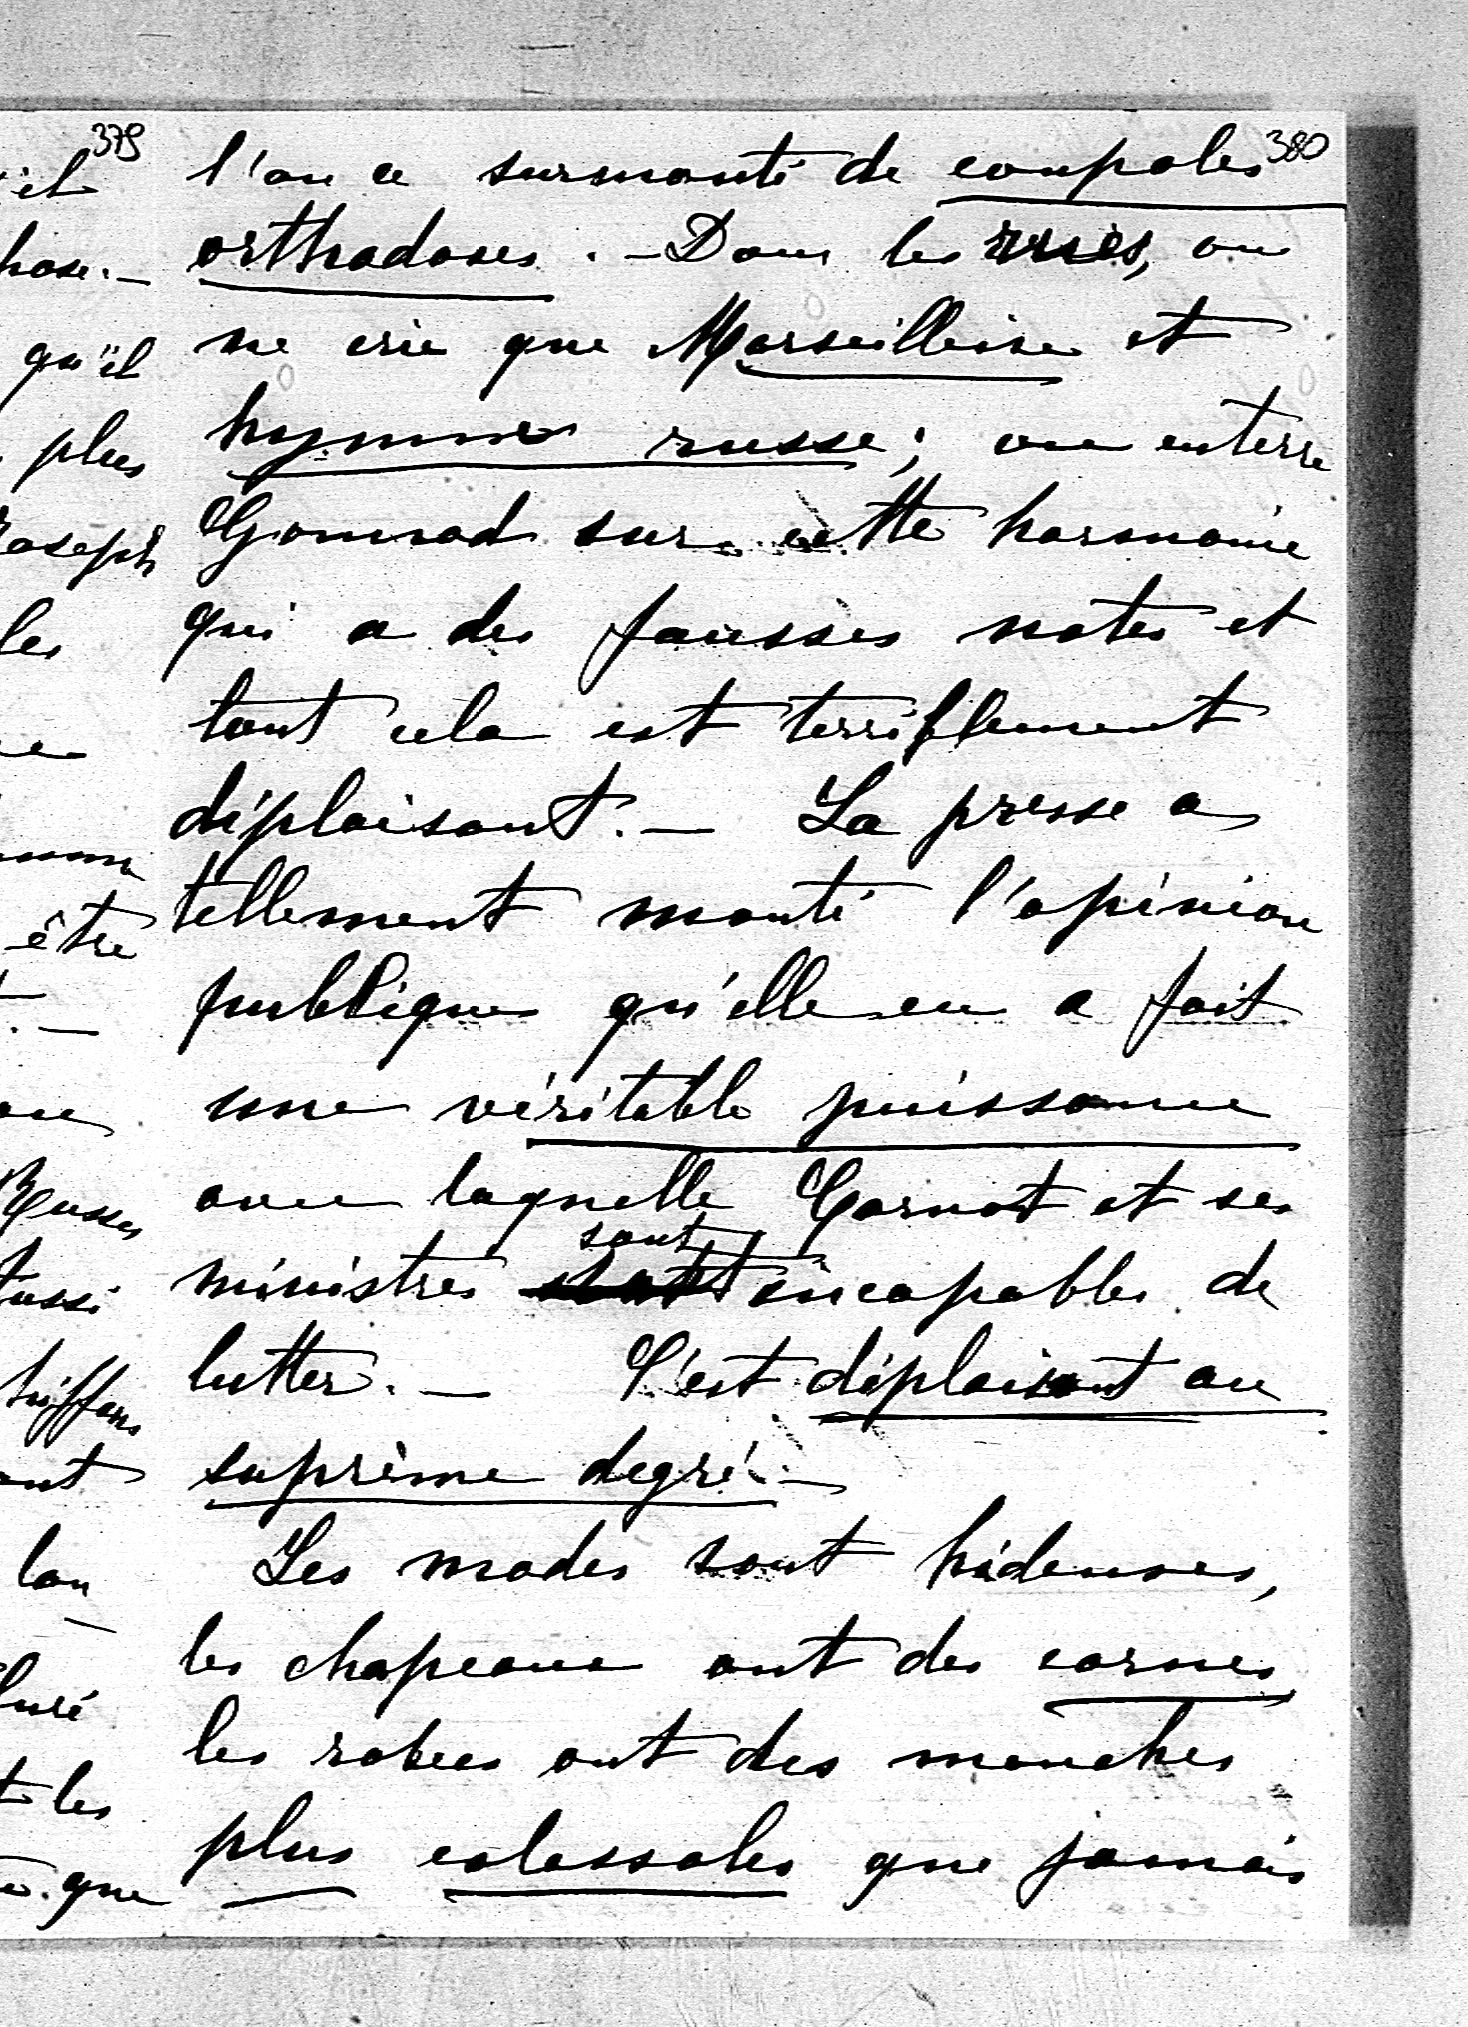 379
380
'il
hose. —
qu'il
plus
Joseph
les
être
Russes
aussi
chiffons
ant
lon
luré
t les
que
l'on a surmonté de coupoles
orthodoxes. — Dans les rues, on
ne crie que Marseillaise et
hymne russe; on enterre
Gounod sur cette harmonie
qui a des fausses notes et
tout cela est terriblement
déplaisant. — La presse a
tellement monté l'opinion
publique qu'elle en a fait
une véritable puissance
avec laquelle Carnot et ses
sont
ministres incapables de
lutter. — C'est déplaisant au
suprême degré —
Les modes sont hideuses,
les chapeaux ont des cornes,
les robes ont des manches
plus colossales que jamais